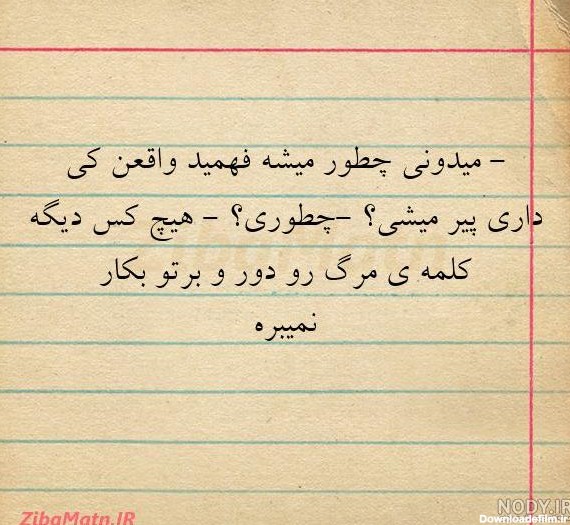 - میدونی چطور میشه فهمید واقعن کی
داری پیر میشی؟ -چطوری؟ - هیچ کس دیگه
کلمه ی مرگ رو دور و برتو بکار
نمیبره
ZibaMatn.IR
ZibaMatn.IR
NODY.IR
Downloadefilm.ir